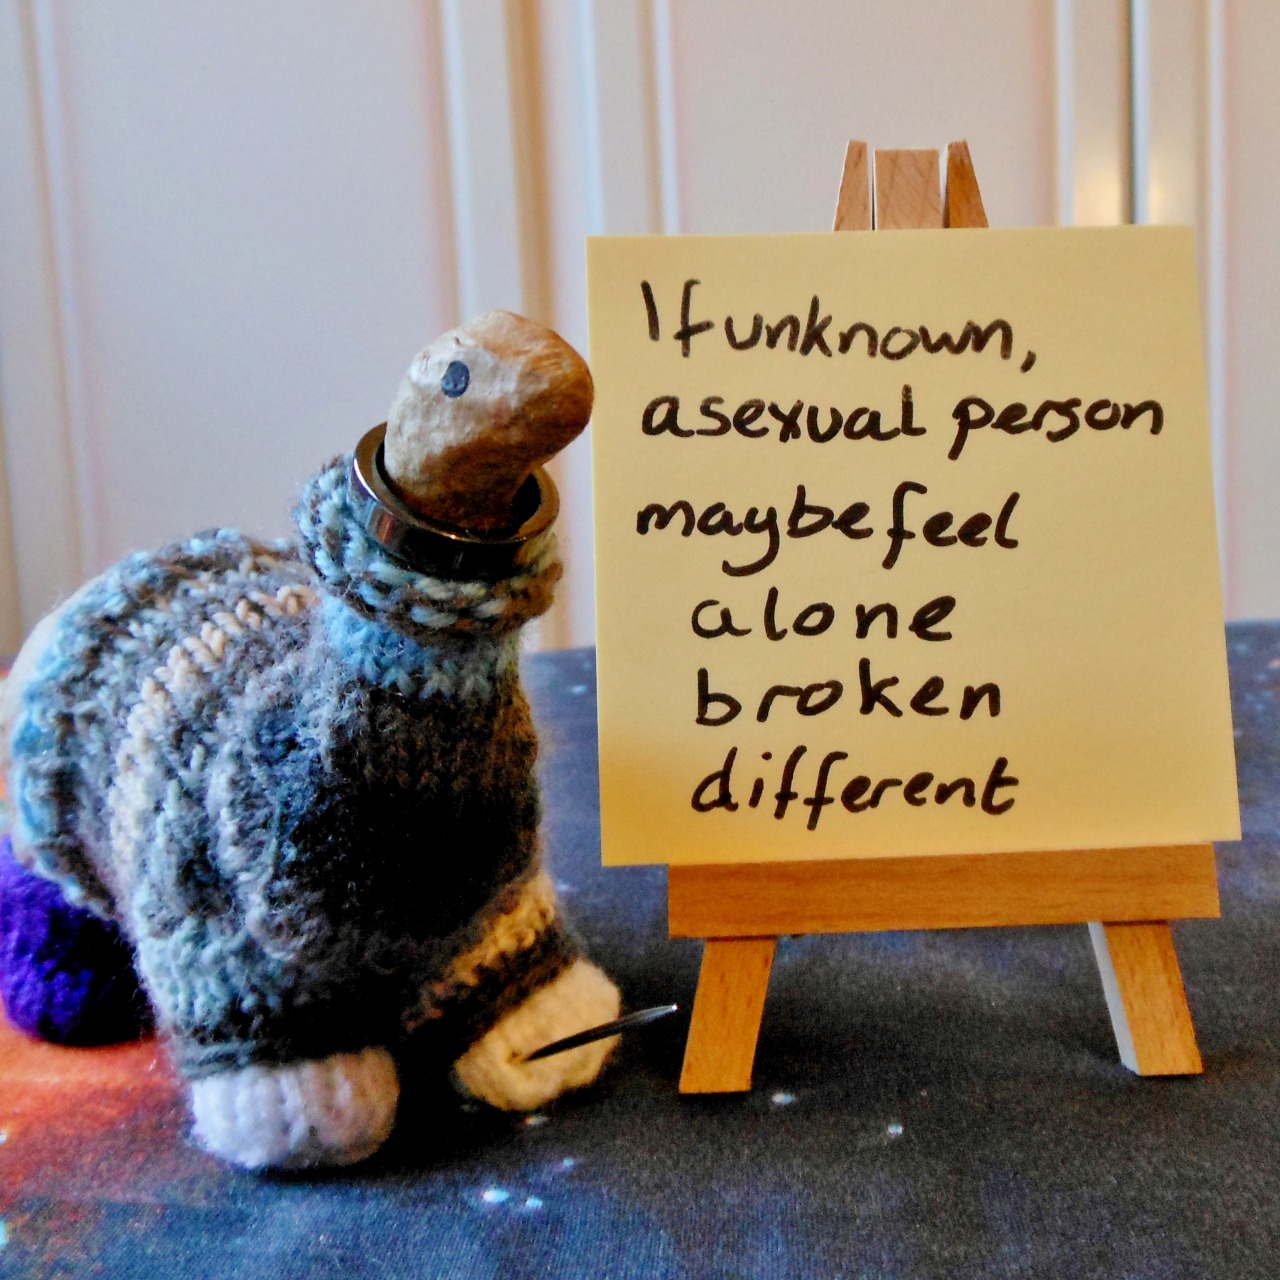 If unknown,
asexual person
maybe feel
alone
broken
different